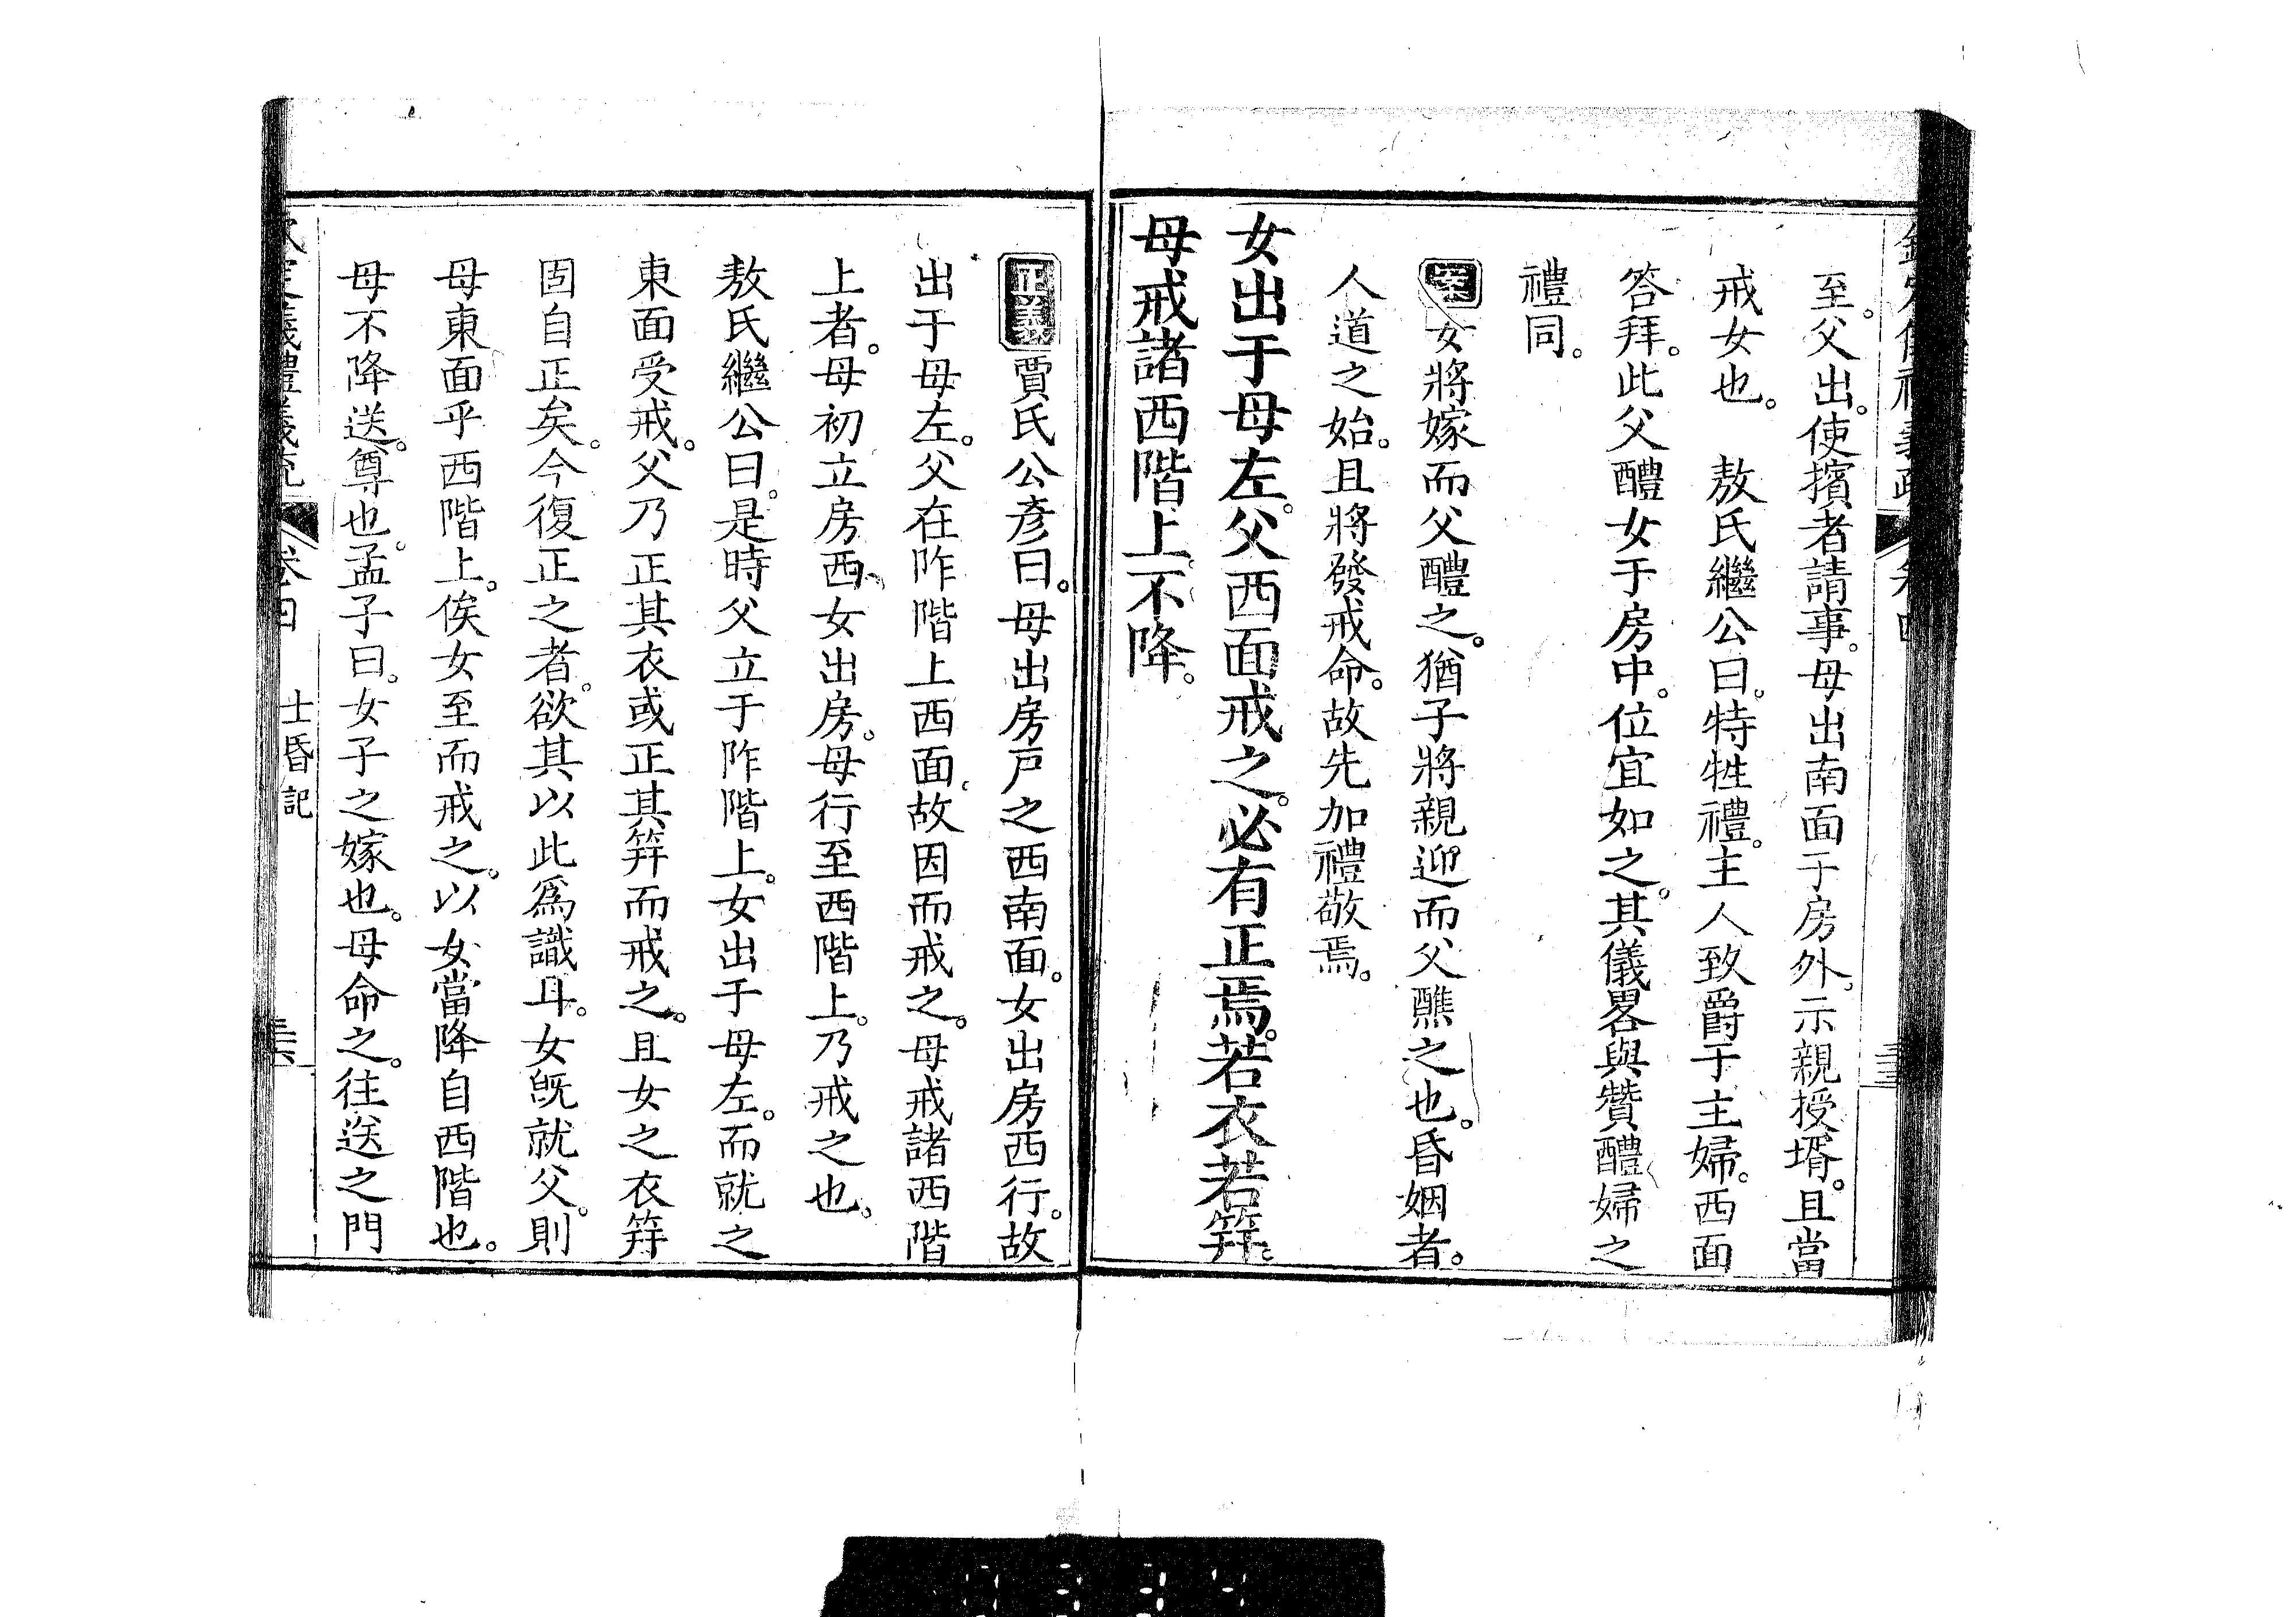 至。父出。使擯者請事。母出南面于房外。示親授壻。且當
戒女也。　敖氏繼公曰。特牲禮。主人致爵于主婦。西面
答拜。此父醴女于房中。位宜如之。其儀畧與贊醴婦之
禮同。
案女將嫁而父醴之。猶子將親迎而父醮之也。昏姻者。
人道之始。且將發戒命。故先加禮敬焉。
女出于母左。父西面戒之。必有正焉。若衣若笄。
母戒諸西階上。不降。
正義賈氏公彥曰。母出房戸之西南面。女出房西行。故
出于母左。父在阼階上西面。故因而戒之。母戒諸西階
上者。母初立房西。女出房。母行至西階上。乃戒之也。
敖氏繼公曰。是時父立于阼階上。女出于母左。而就之
東面受戒。父乃正其衣或正其笄而戒之。且女之衣笄
固自正矣。今復正之者。欲其以此爲識耳。女旣就父。則
母東面乎西階上。俟女至而戒之。以女當降自西階也。
母不降送。尊也。孟子曰。女子之嫁也。母命之。往送之門
士昏記